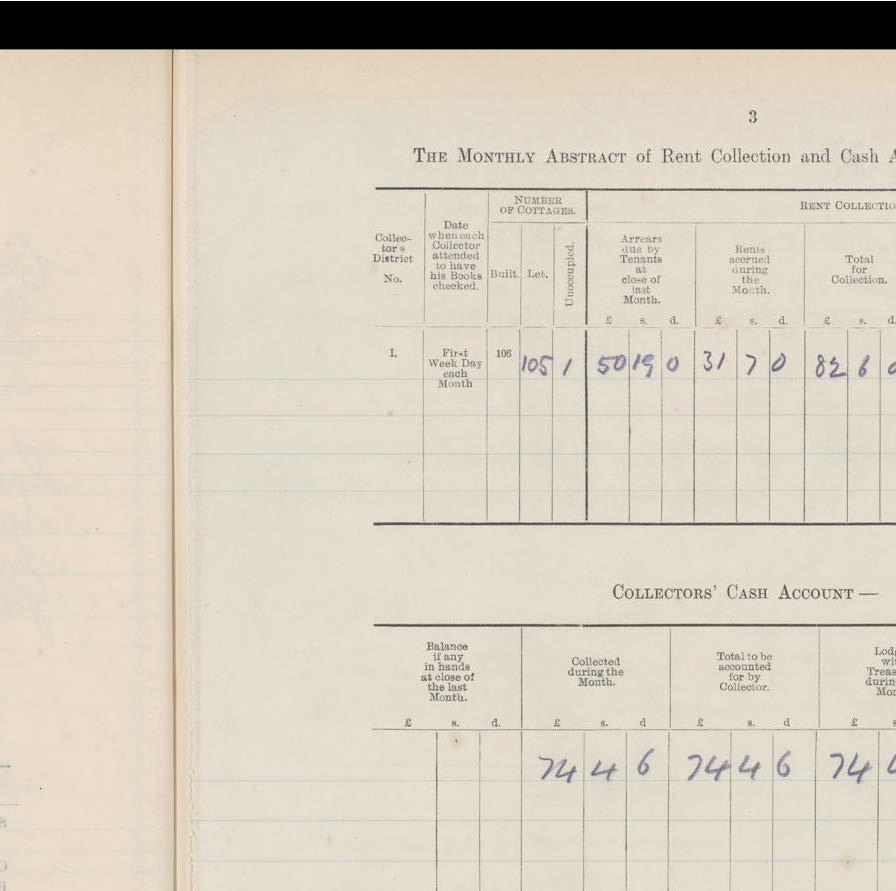 3
THE MONTHLY ABSTRACT of Rent Collection and Cash A
NUMBER
OF COTTAGES.
RENT COLLECTIO
Collec-
tor's
District
No.
Date
when each
Collector
attended
to have
his Books
checked.
Built.
Let.
Unoccupied.
Arrears
due by
Tenants
at
close of
last
Month.
Rents
accrued
during
the
Month.
Total
for
Collection.
£ s. d. £ s. d. £ s. d.
I. First
Week Day
each
Month
106 105 1 50 19 0 31 7 0 82 6 0
COLLECTORS' CASH ACCOUNT —
Balance
if any
in hands
at close of
the last
Month.
Collected
during the
Month.
Total to be
accounted
for by
Collector.
Lodg
wi
Treas
durin
Mon
£ s. d. £ s. d £ s. d £ s
74 4 6 74 4 6 74 4